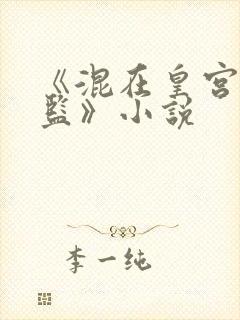 《混在皇宫
监》小说
李一纯